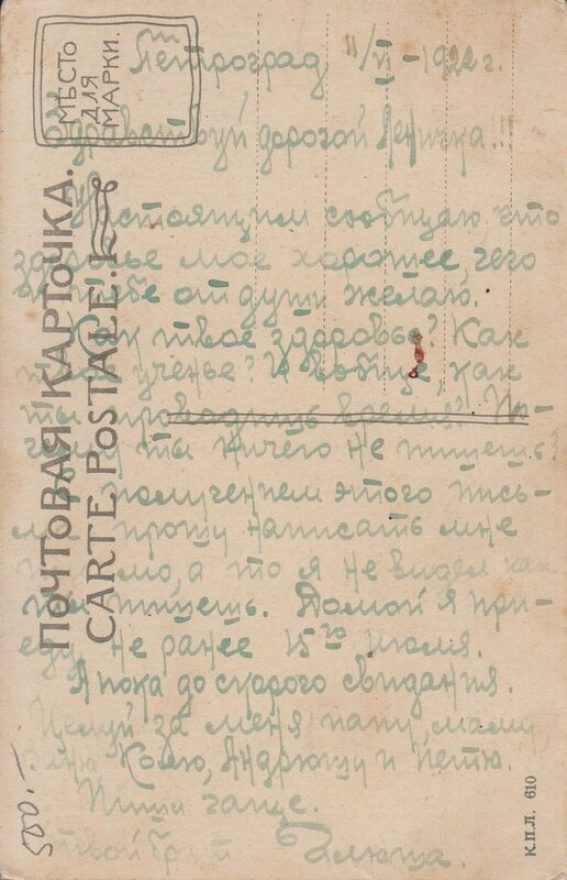 МѢСТО
ДЛЯ
МАРКИ.
ПОЧТОВАЯ КАРТОЧКА.
CARTE POSTALE.
Петроград 11/VI – 1922 г.
Здравствуй дорогой Леничка!!!
Настоящим сообщаю, что
здоровье мое хорошее, чего
и тебе от души желаю.
Как твое здоровье? Как
твое ученье? И вобще, как
ты проводишь время? По-
чему ты ничего не пишешь?
С получением этого пись-
ма прошу написать мне
письмо, а то я не видел как
ты пишешь. Домой я при-
еду не ранее 15го Июля.
А пока до скорого свидания.
Целуй за меня папу, маму,
Колю, Андрюшу и Петю.
Пиши чаще.
твой брат
К.П.Л. 610
500.–